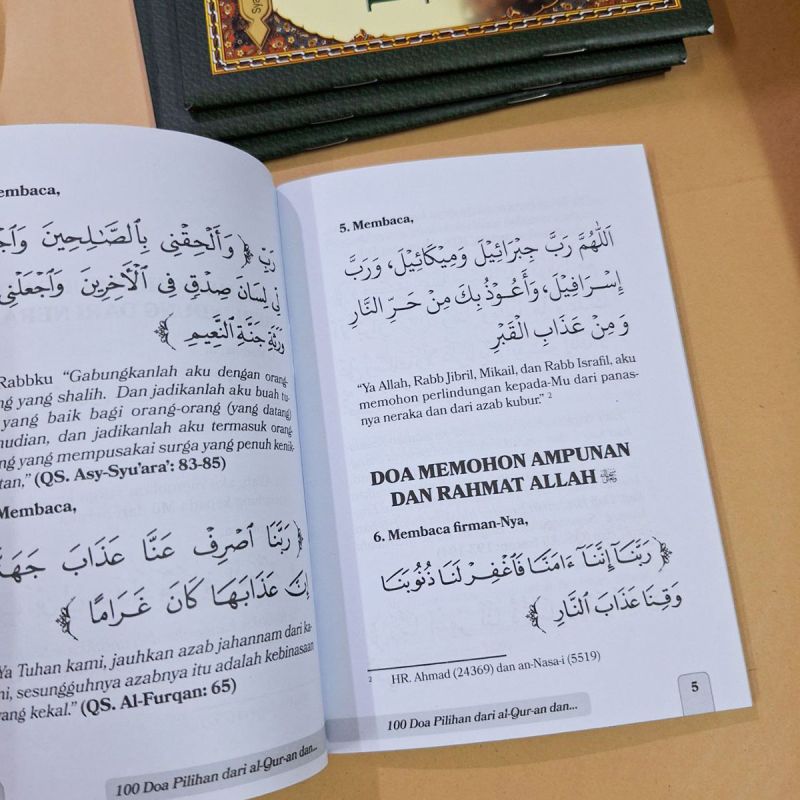 embaca,
رَبِّ ﴿ وَأَلْحِقْنِى بِٱلصَّـٰلِحِينَ
فِى لِسَانَ صِدْقٍ فِى ٱلْأَخِرِينَ وَٱجْعَلْنِى
وَرَثَةِ جَنَّةِ ٱلنَّعِيمِ ﴾
Rabbku “Gabungkanlah aku dengan orang-
ng yang shalih. Dan jadikanlah aku buah tu-
yang baik bagi orang-orang (yang datang)
mudian, dan jadikanlah aku termasuk orang
ng yang mempusakai surga yang penuh kenik-
tan,” (QS. Asy-Syu'ara': 83-85)
Membaca,
﴿ رَبَّنَا ٱصْرِفْ عَنَّا عَذَابَ
إِنَّ عَذَابَهَا كَانَ غَرَامًا ﴾
Ya Tuhan kami, jauhkan azab jahannam dari ka-
mi, sesungguhnya azabnya itu adalah kebinasaan
yang kekal.” (QS. Al-Furqan: 65)
100 Doa Pilihan dari al-Qur-an dan...
5. Membaca,
اَللّٰهُمَّ رَبَّ جِبْرَائِيْلَ وَمِيْكَائِيْلَ، وَرَبَّ
إِسْرَافِيْلَ، وَأَعُوْذُ بِكَ مِنْ حَرِّ النَّارِ
وَمِنْ عَذَابِ الْقَبْرِ
“Ya Allah, Rabb Jibril, Mikail, dan Rabb Israfil, aku
memohon perlindungan kepada-Mu dari panas-
nya neraka dan dari azab kubur.” 2
DOA MEMOHON AMPUNAN
DAN RAHMAT ALLAH
6. Membaca firman-Nya,
﴿ رَبَّنَآ إِنَّنَآ ءَامَنَّا فَٱغْفِرْ لَنَا ذُنُوبَنَا
وَقِنَا عَذَابَ ٱلنَّارِ ﴾
2 HR. Ahmad (24369) dan an-Nasa-i (5519)
5
100 Doa Pilihan dari al-Qur-an dan...